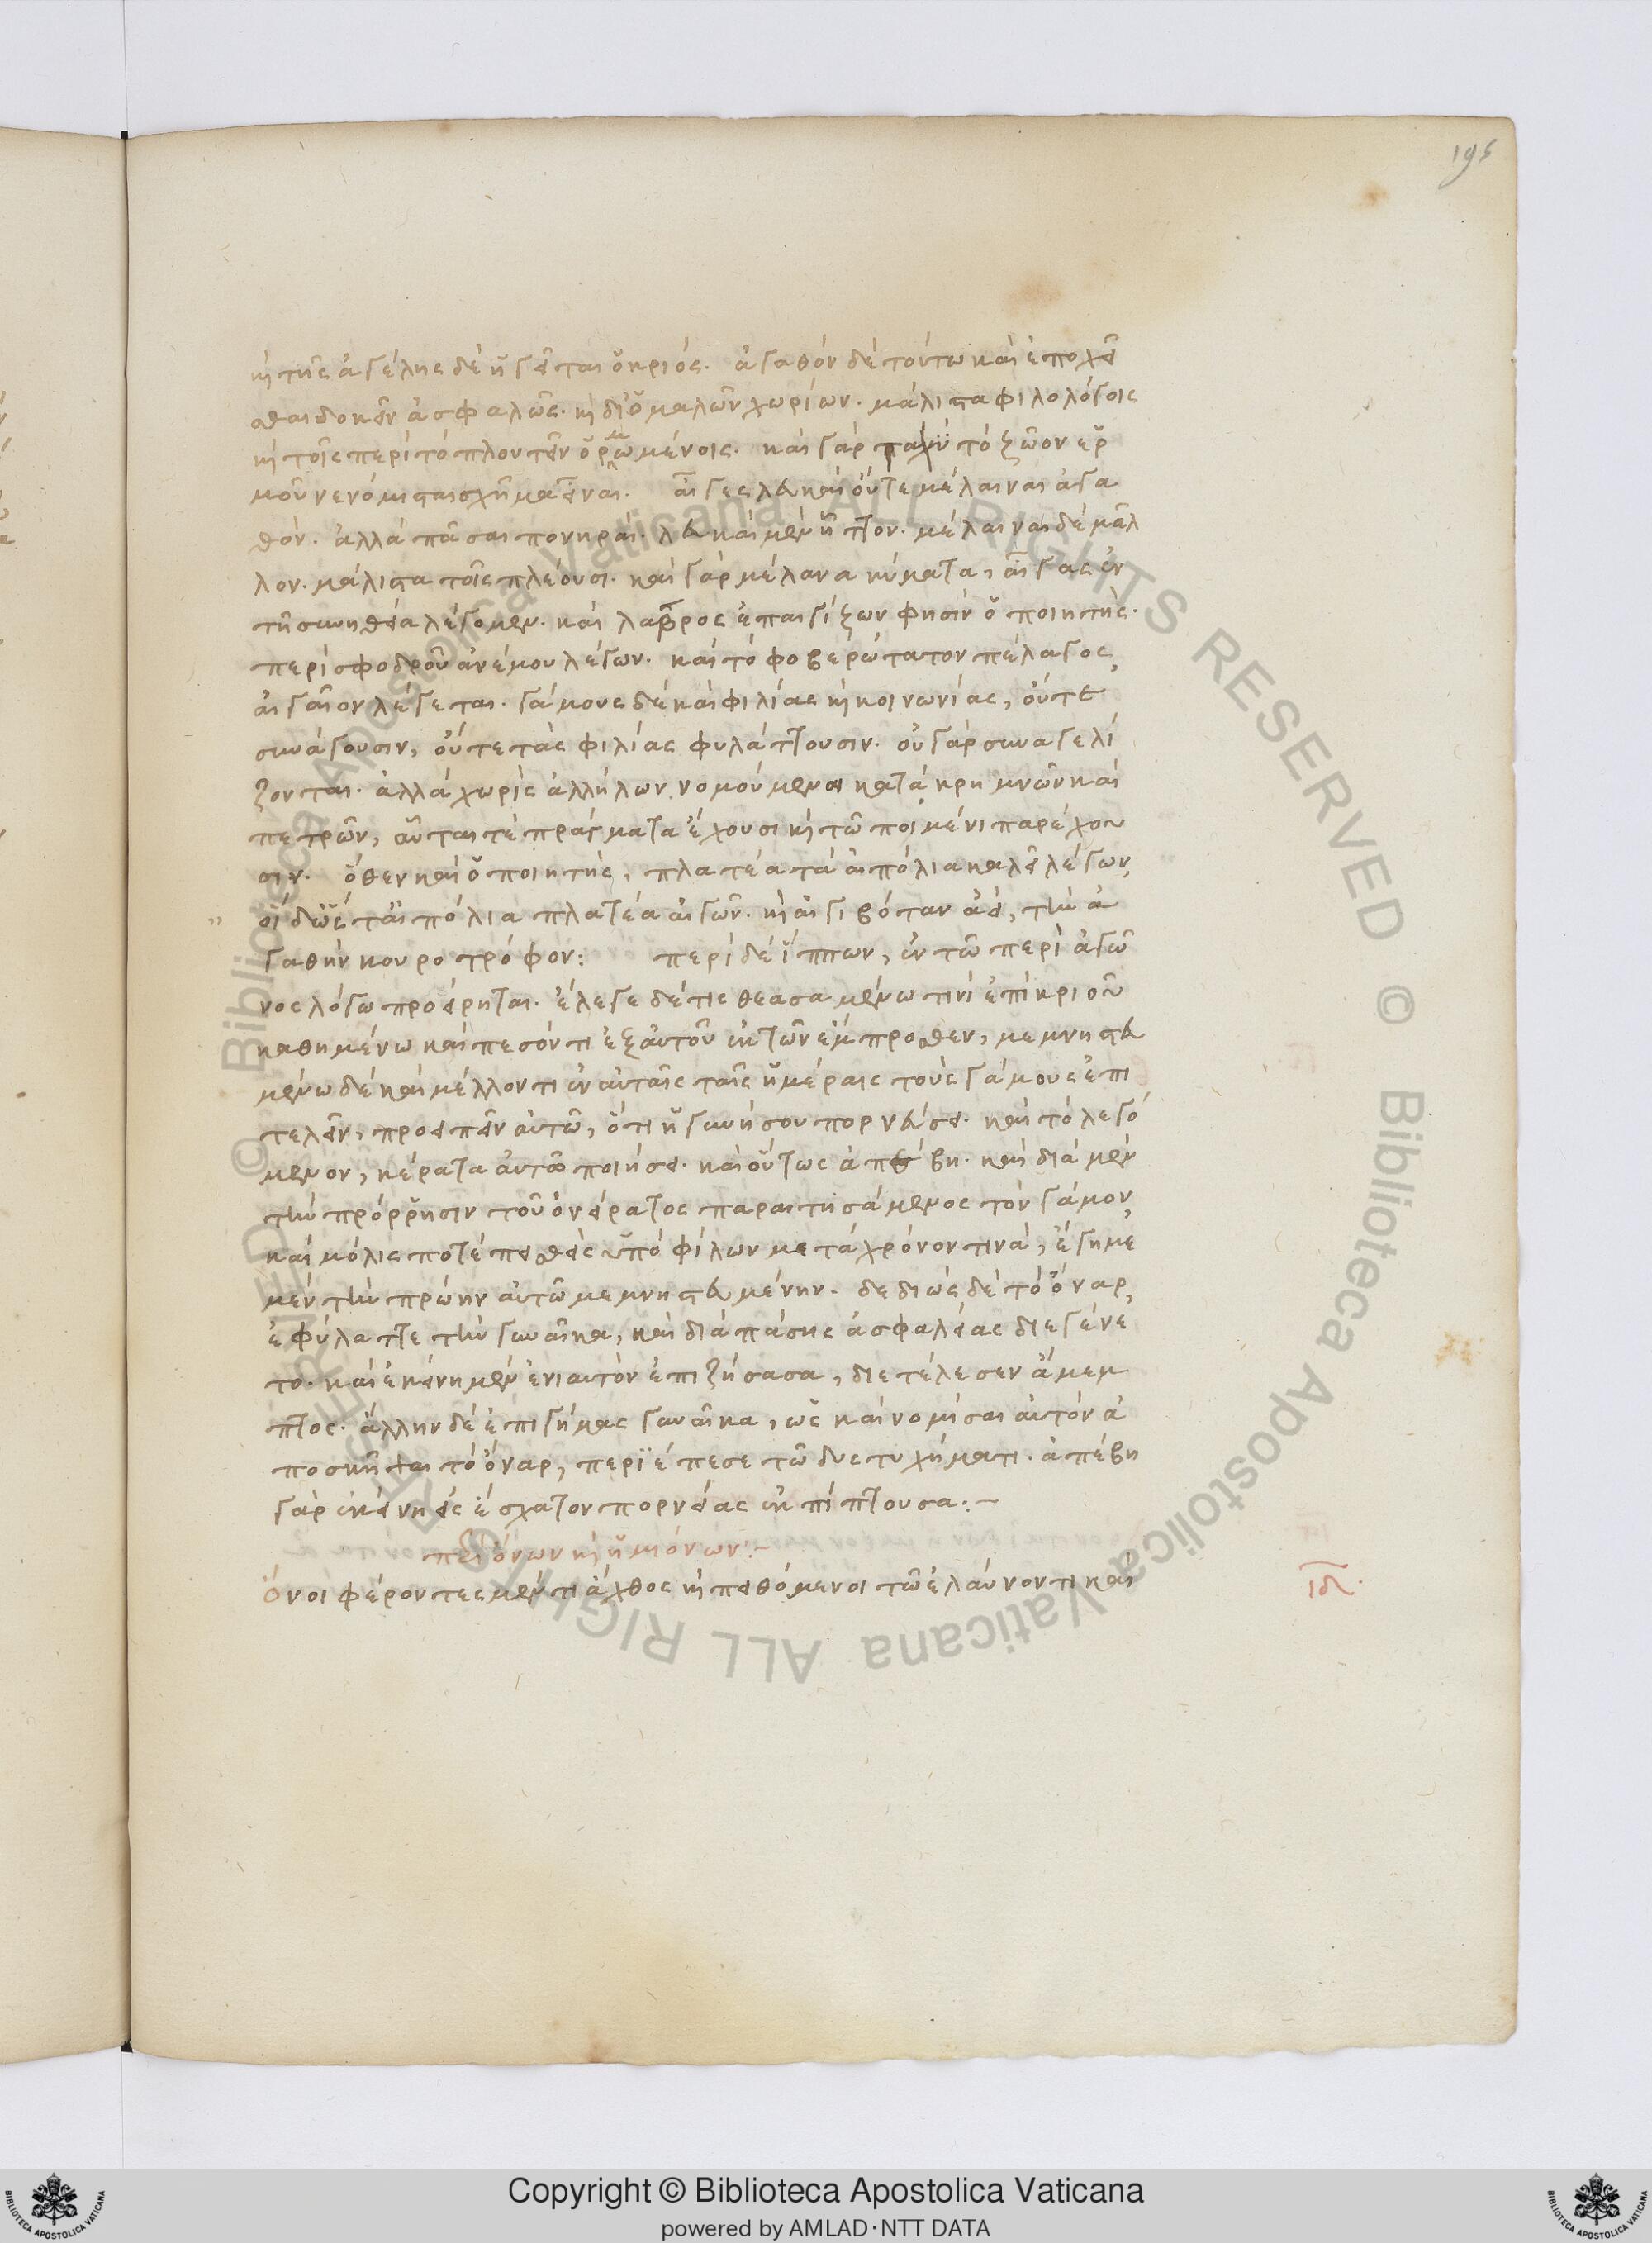 195
κ̀ τῆς ἀγέλης δὲ ἡγεῖται ὁ κριός. ἀγαθὸν δὲ τούτω καὶ ἐποχεῖ
σθαι δοκεῖν ἀσφαλῶς. κ̀ δι' ὁμαλῶν χωρίων. μάλιστα φιλολόγοις
κ̀ τοῖς περὶ τὸ πλουτεῖν ὁρμωμένοις. καὶ γὰρ ταχὺ τὸ ζῶον ἑρ
μοῦ νενόμισται σχῆμα εἶναι. αἶγες λευκαὶ οὔτε μέλαιναι ἀγα
θόν. ἀλλὰ πᾶσαι πονηραί. λευκαὶ μὲν ἧττον. μέλαιναι δὲ μᾶλ
λον. μάλιστα τοῖς πλέουσι. καὶ γὰρ μέλανα κύματα, αἶγας ἐν
τῆ συνηθεία λέγομεν. καὶ λάβρος ἐπαιγίζων φησὶν ὁ ποιητής.
περὶ σφοδροῦ ἀνέμου λέγων. καὶ τὸ φοβερώτατον πέλαγος,
αἰγαῖον λέγεται. γάμους δὲ καὶ φιλίας κ̀ κοινωνίας, οὔτε
συνάγουσιν, οὔτε τὰς φιλίας φυλάττουσιν. οὐ γὰρ συναγελί
ζονται. ἀλλὰ χωρὶς ἀλλήλων νομούμεναι κατὰ κρημνῶν καὶ
πετρῶν, αὗται τὲ πράγματα ἔχουσι κ̀ τῶ ποιμένι παρέχου
σιν. ὅθεν καὶ ὁ ποιητὴς, πλατέα τὰ αἰπόλια καλεῖ λέγων,
οἱ δ' ὥς τ' αἰπόλια πλατέα αἰγῶν. κ̀ αἰγιβόταν ἀεὶ, τὴν ἀ
γαθὴν κουροτρόφον: περὶ δὲ ἵππων, ἐν τῶ περὶ ἀγῶ
νος λόγω προείρηται. ἔλεγε δέ τις θεασαμένω τινὶ ἐπὶ κριοῦ
καθημένω καὶ πεσόντι ἐξ αὐτοῦ ἐκ τῶν ἔμπροσθεν, μεμνηστευ
μένω δὲ καὶ μέλλοντι ἐν αὐταῖς ταῖς ἡμέραις τοὺς γάμους ἐπι
τελεῖν, προειπεῖν αὐτῶ, ὅτι ἡ γυνή σου πορνεύσει. καὶ τὸ λεγό
μενον, κέρατα αὐτῶ ποιήσει. καὶ οὕτως ἀπέβη. καὶ διὰ μὲν
τὴν πρόρρησιν τοῦ ὀνείρατος παραιτησάμενος τὸν γάμον,
καὶ μόλις ποτὲ πεισθεὶς ὑπὸ φίλων μετὰ χρόνον τινὰ, ἔγημε
μὲν τὴν πρώην αὐτῶ μεμνηστευμένην. δεδιὼς δὲ τὸ ὄναρ,
ἐφύλαττε τὴν γυναῖκα, καὶ διὰ πάσης ἀσφαλείας διεγένε
το. καὶ ἐκείνη μὲν ἐνιαυτὸν ἐπιζήσασα, διετέλεσεν ἄμεμ
πτος. ἄλλην δὲ ἐπιγήμας γυναῖκα, ὡς καὶ νομίσαι αὐτὸν ἀ
ποσκῆψαι τὸ ὄναρ, περιέπεσε τῶ δυστυχήματι. ἀπέβη
γὰρ ἐκείνη εἰς ἔσχατον πορνείας ἐκπίπτουσα:-
περὶ ὄνων κ̀ ἡμιόνων:-
Ὄνοι φέροντες μέν τι ἄχθος κ̀ πειθόμενοι τῶ ἐλαύνοντι καὶ
ιβ.
© Biblioteca Apostolica Vaticana ALL RIGHTS RESERVED © Biblioteca Apostolica Vaticana ALL RIGHTS RESERVED
Copyright © Biblioteca Apostolica Vaticana
powered by AMLAD·NTT DATA
BIBLIOTECA APOSTOLICA VATICANA
BIBLIOTECA APOSTOLICA VATICANA